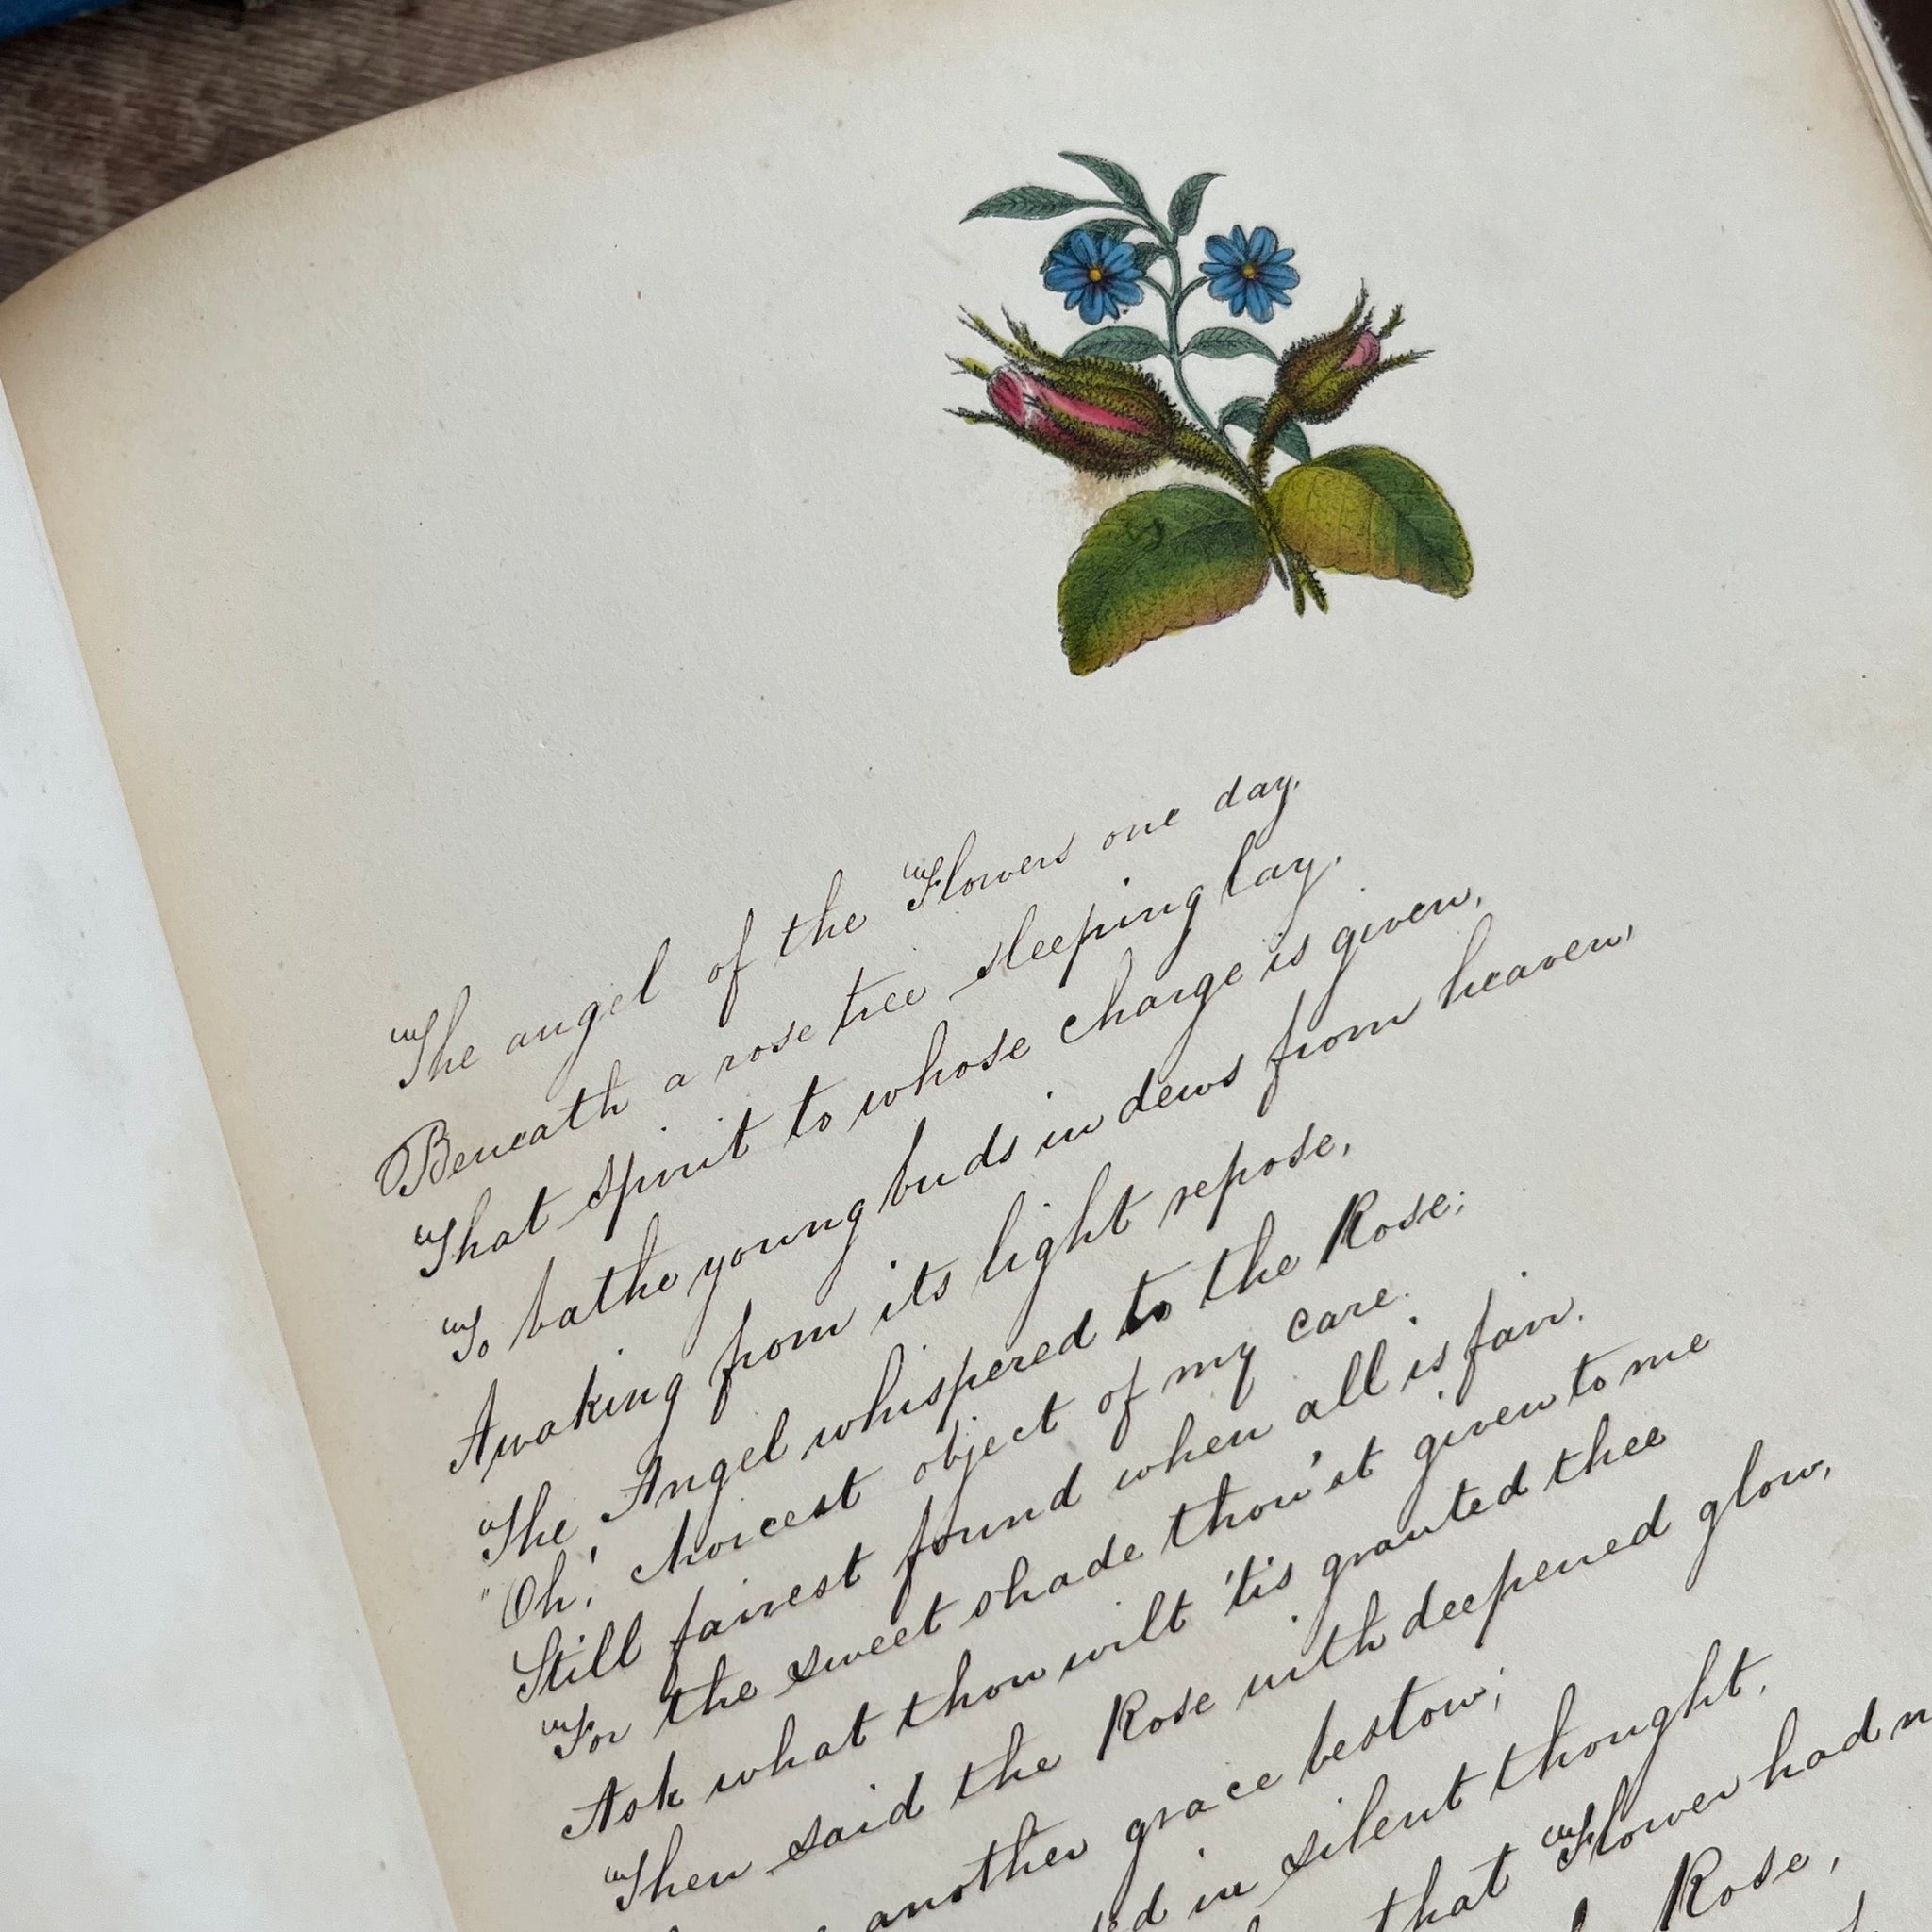 The angel of the Flowers one day.
Beneath a rose tree sleeping lay.
That spirit to whose charge is given,
To bathe young buds in dews from heaven,
Awaking from its light repose,
The Angel whispered to the Rose;
"Oh! choicest object of my care.
Still fairest found when all is fair.
For the sweet shade thou'st given to me
Ask what thou wilt 'tis granted thee
Then said the Rose with deepened glow,
another grace bestow;
in silent thought.
that Flower had
Rose,